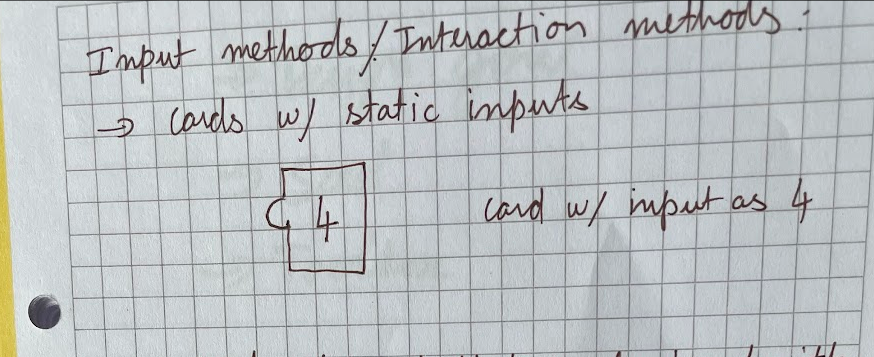 Input methods / Interaction methods :
→ cards w/ static inputs
4
card w/ input as 4